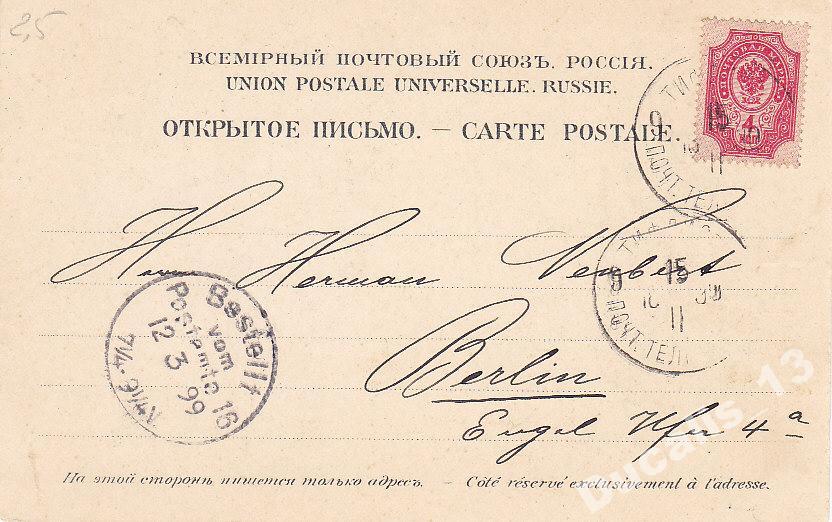 2,5
ВСЕМІРНЫЙ ПОЧТОВЫЙ СОЮЗЪ. РОССІЯ.
UNION POSTALE UNIVERSELLE. RUSSIE.
ОТКРЫТОЕ ПИСЬМО. — CARTE POSTALE.
ПОЧТОВАЯ МАРКА
4
ТИФ
9 15
11
ПОЧТ. ТЕЛ
ТИФЛИС
9 15
11
ПОЧТ. ТЕЛ
Herrn Herman
Berlin
Engel Ufer 4a
Bestellt
vom
Postamte 16
12 3 99
7¼-8¼ V
На этой сторонѣ пишется только адресъ. — Côté réservé exclusivement à l'adresse.
Ducalis_13